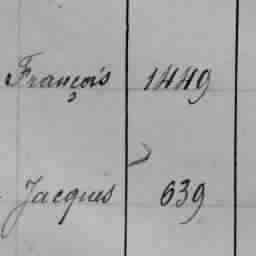 François 1449
Jacques 639